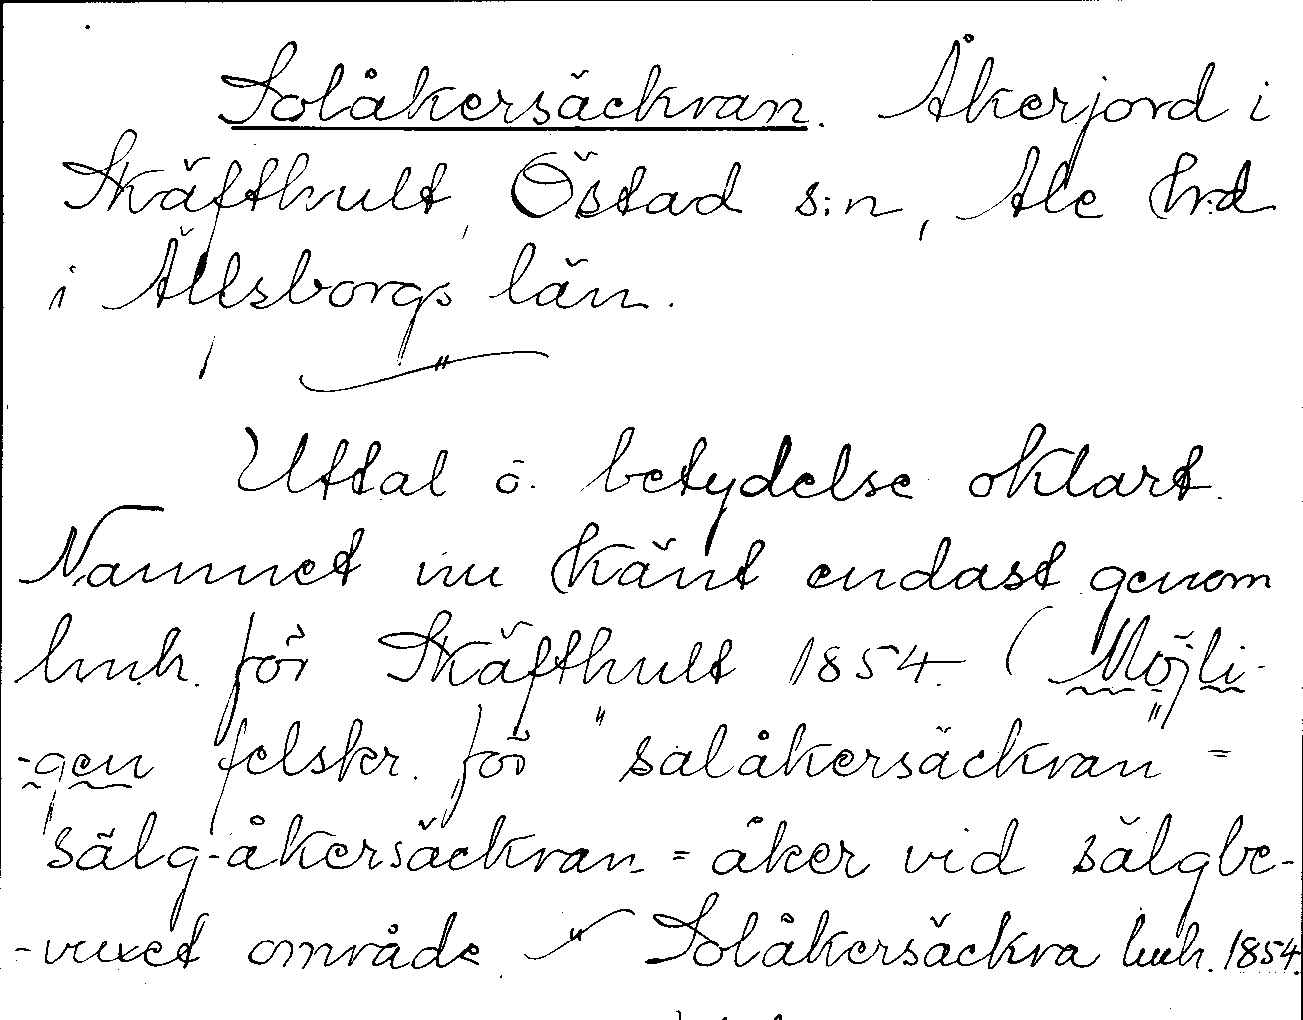 Solåkersäckran. Åkerjord i
Skäfthult, Östad s:n, Ale hrd
i Älfsborgs län.
Uttal o. betydelse oklart.
Namnet nu känt endast genom
lmh. för Skäfthult 1854. (Möjli-
-gen felskr. för "salåkersäckran" =
sälg-åkersäckran = åker vid sälgbe-
-vuxet område Solåkersäckra lmh. 1854.